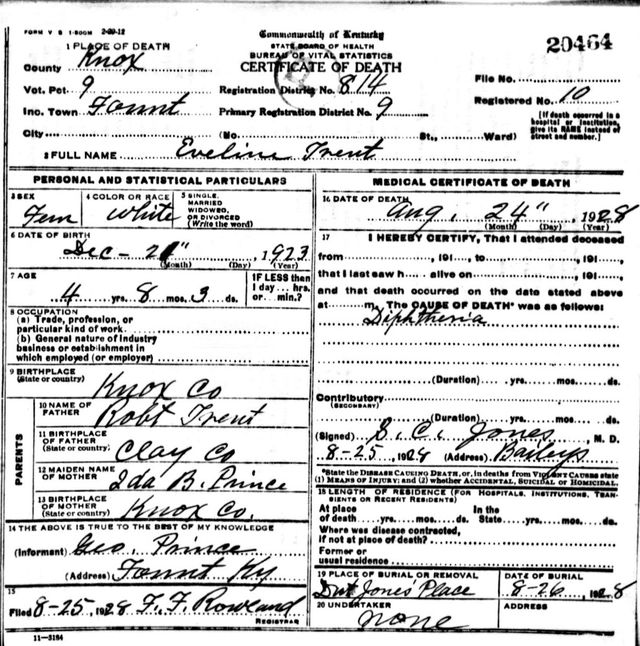 FORM V S 1-500M 2-29-12
Commonwealth of Kentucky
STATE BOARD OF HEALTH
BUREAU OF VITAL STATISTICS
CERTIFICATE OF DEATH
20464
1 PLACE OF DEATH
County Knox
Vot. Pct 9
Inc. Town Fount
City
Registration District No. 814
Primary Registration District No. 9
(No. St., Ward)
File No.
Registered No. 10
[If death occurred in a hospital or institution, give its NAME instead of street and number.]
2 FULL NAME Eveline Trent
PERSONAL AND STATISTICAL PARTICULARS
3 SEX Fem
4 COLOR OR RACE White
5 SINGLE, MARRIED WIDOWED, OR DIVORCED (Write the word)
6 DATE OF BIRTH
Dec - 21", 1923
(Month) (Day) (Year)
7 AGE
4 yrs. 8 mos. 3 ds.
IF LESS than 1 day... hrs. or... min.?
8 OCCUPATION
(a) Trade, profession, or particular kind of work
(b) General nature of industry business or establishment in which employed (or employer)
9 BIRTHPLACE
(State or country) Knox Co
PARENTS
10 NAME OF FATHER Robt Trent
11 BIRTHPLACE OF FATHER (State or country) Clay Co
12 MAIDEN NAME OF MOTHER Ida B. Prince
13 BIRTHPLACE OF MOTHER (State or country) Knox Co.
14 THE ABOVE IS TRUE TO THE BEST OF MY KNOWLEDGE
(Informant) Geo. Prince
(Address) Fount Ky
15
Filed 8-25, 1928 F. F. Rowland
REGISTRAR
11-3184
MEDICAL CERTIFICATE OF DEATH
16 DATE OF DEATH
Aug, 24", 1928
(Month) (Day) (Year)
17 I HEREBY CERTIFY, That I attended deceased
from , 191..., to , 191...,
that I last saw h... alive on , 191...,
and that death occurred on the date stated above
at m. The CAUSE OF DEATH* was as follows:
Diphtheria
(Duration) yrs. mos. ds.
Contributory
(SECONDARY)
(Duration) yrs. mos. ds.
(Signed) S. C. Jones, M. D.
8-25, 1928 (Address)
*State the DISEASE CAUSING DEATH, or, in deaths from VIOLENT CAUSES state (1) MEANS OF INJURY; and (2) whether ACCIDENTAL, SUICIDAL or HOMICIDAL.
18 LENGTH OF RESIDENCE (FOR HOSPITALS, INSTITUTIONS, TRANSIENTS OR RECENT RESIDENTS)
At place of death yrs. mos. ds. In the State yrs. mos. ds.
Where was disease contracted, if not at place of death?
Former or usual residence
19 PLACE OF BURIAL OR REMOVAL
Jones' Place
DATE OF BURIAL
8-26, 1928
20 UNDERTAKER
none
ADDRESS